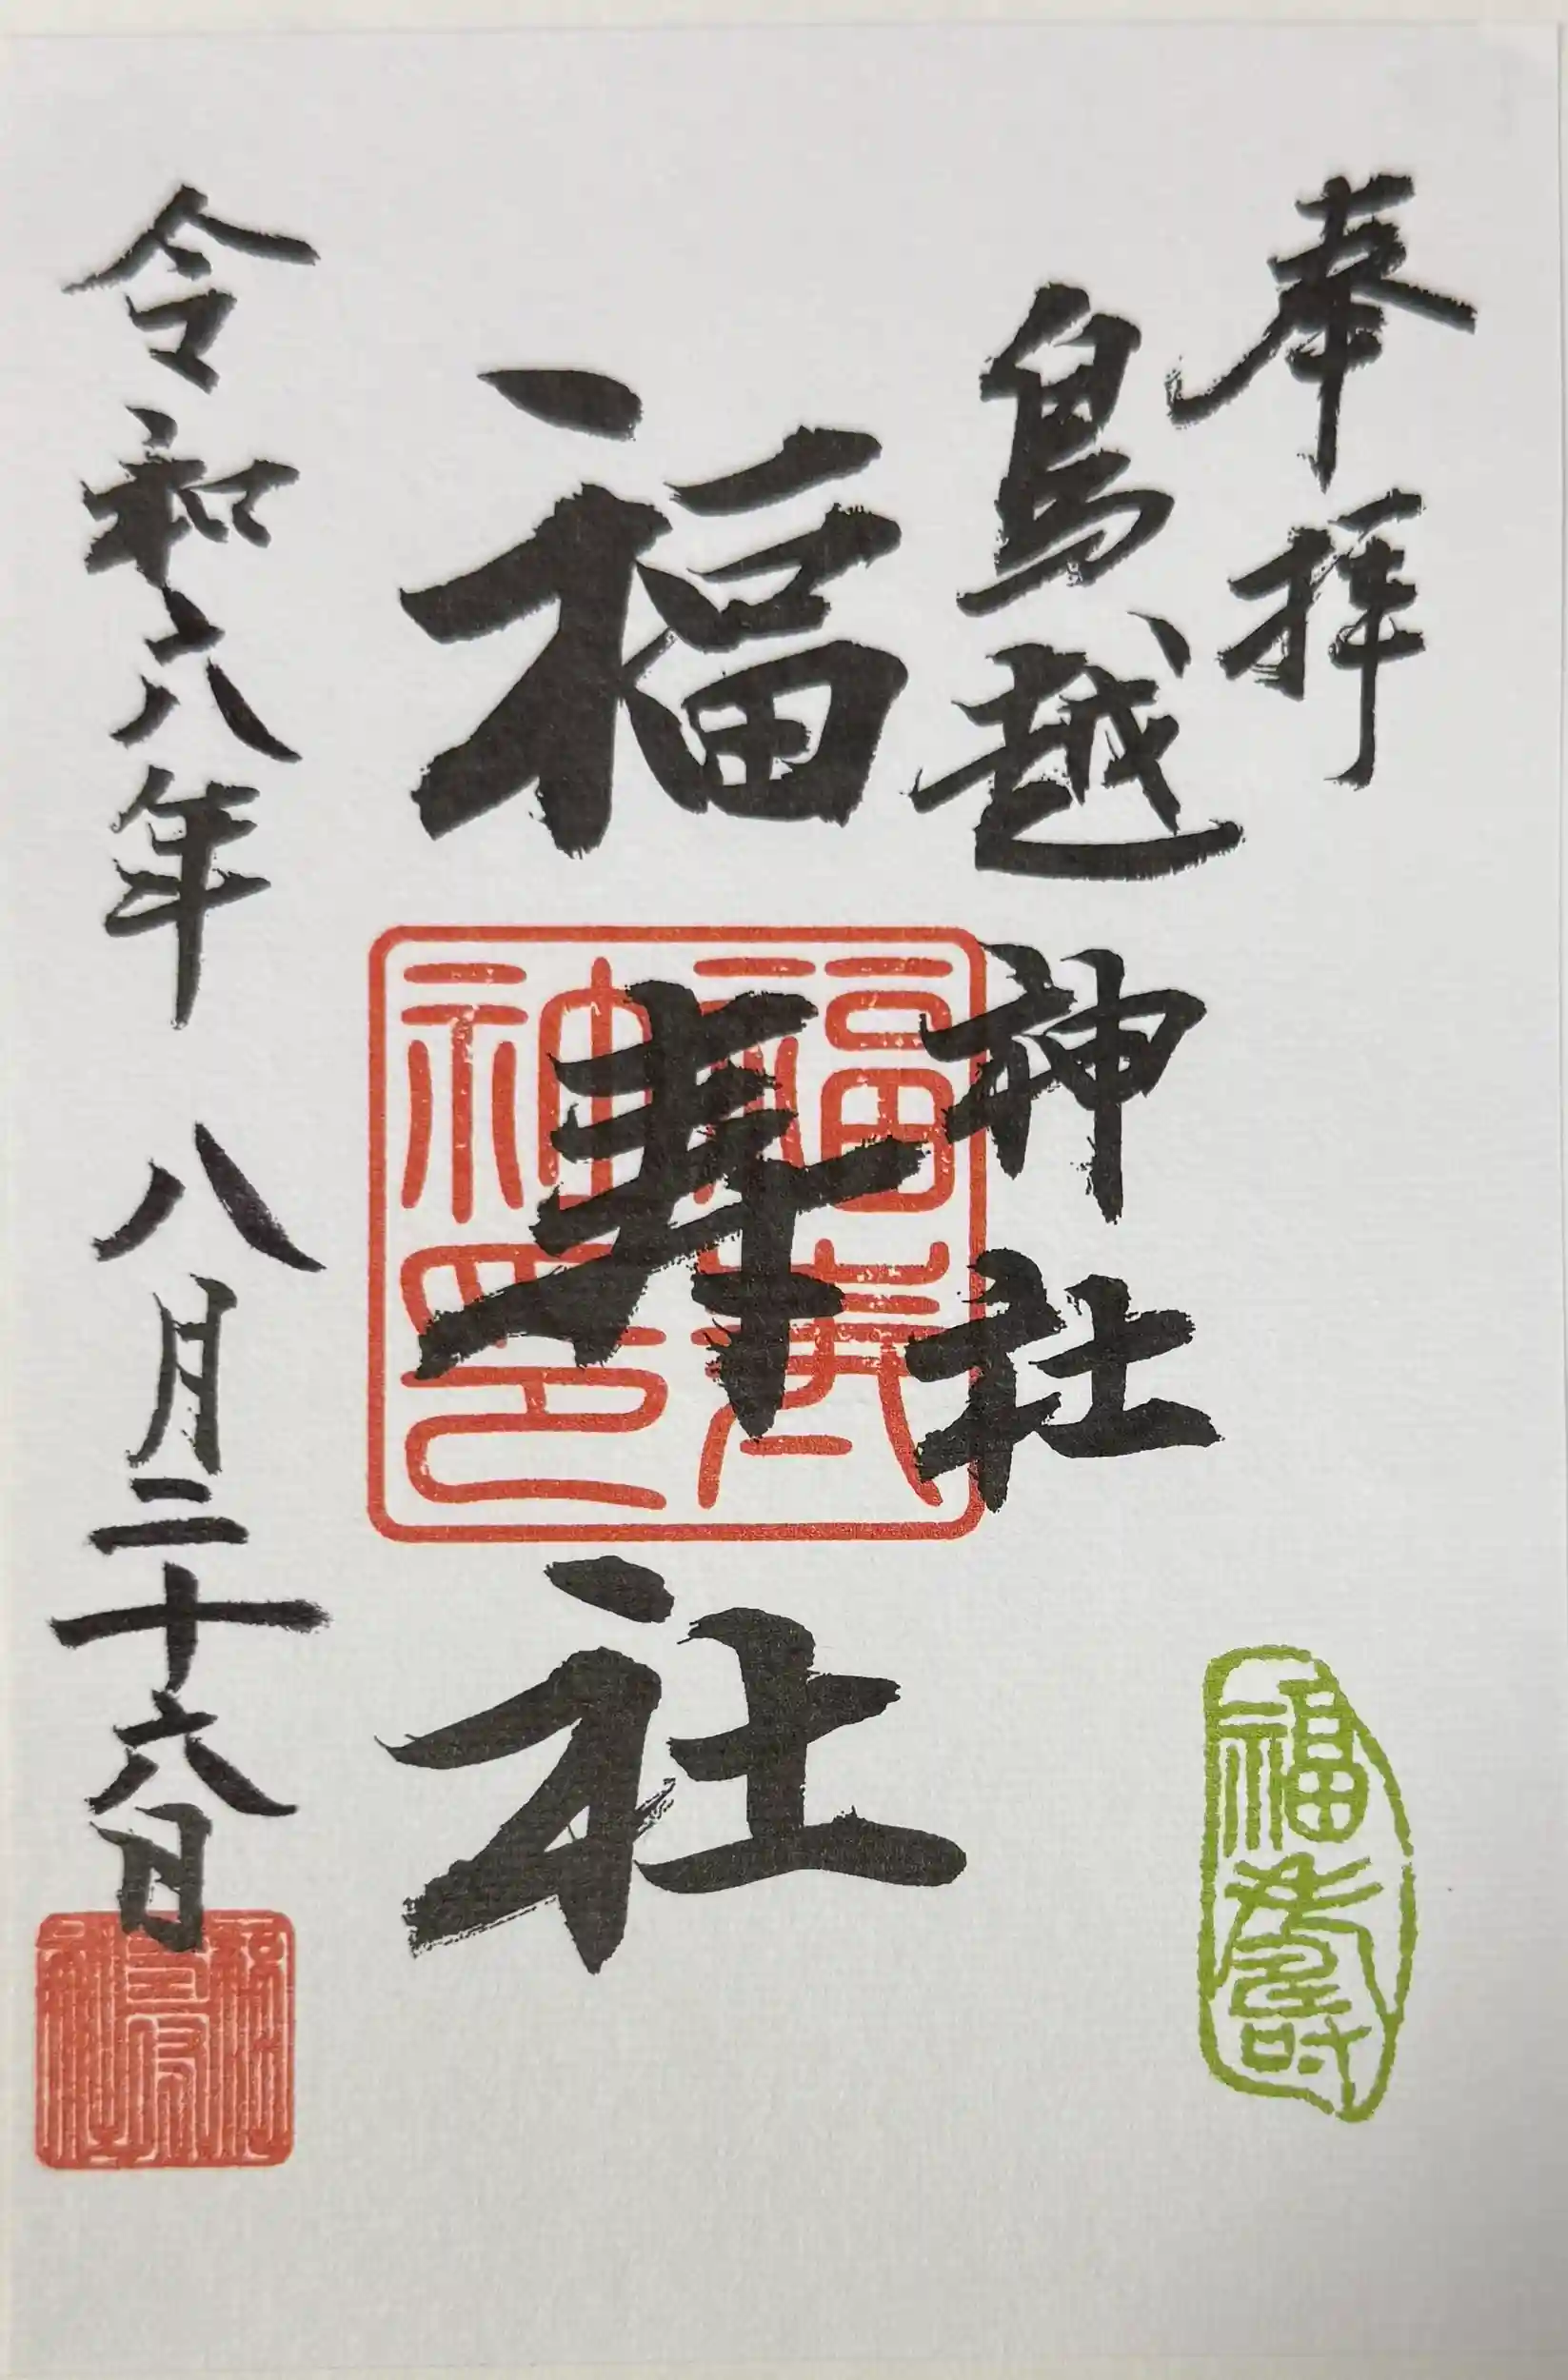 奉拝
鳥越神社
福寿社
令和六年八月二十六日
福壽